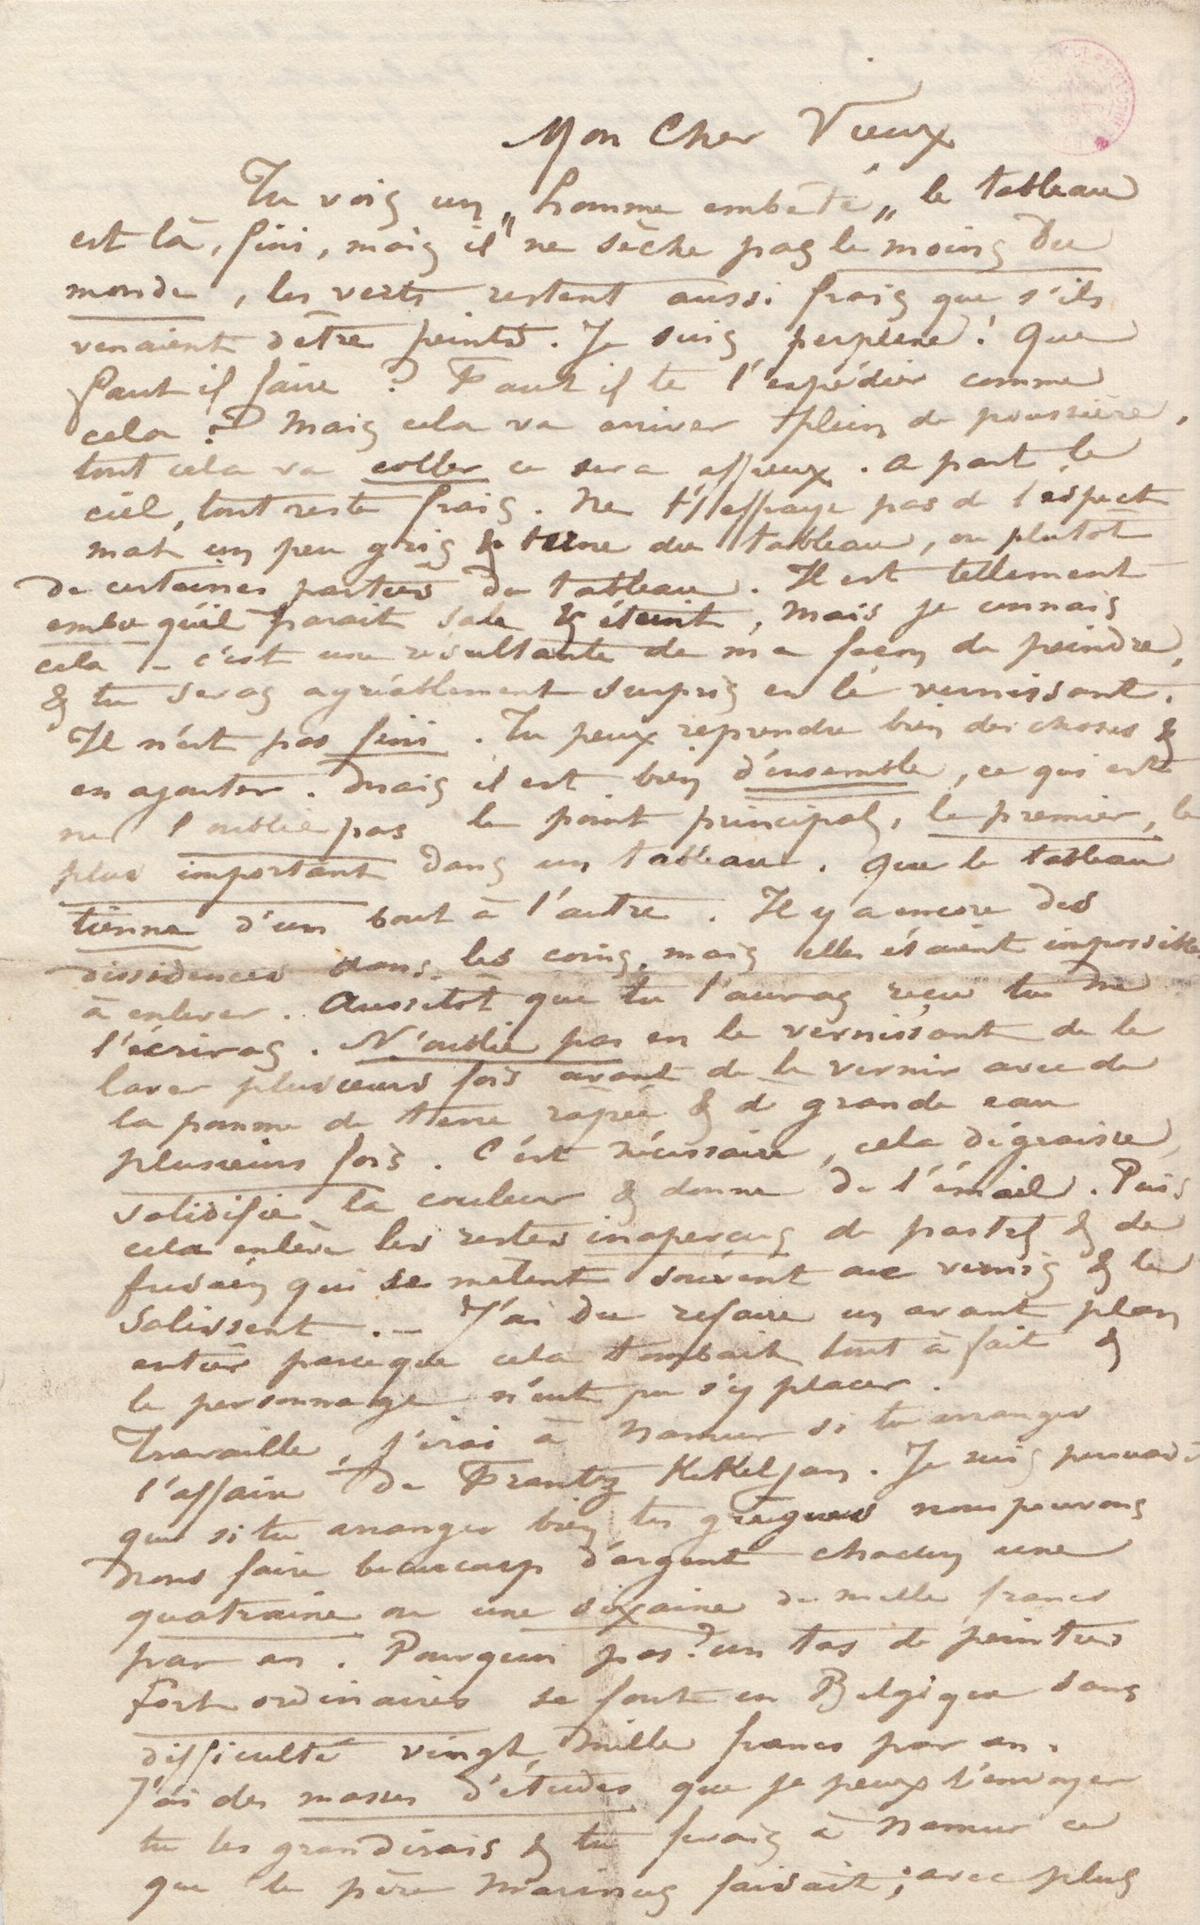 Mon Cher Vieux
Tu vois un „homme embêté„ le tableau
est là, fini, mais il ne sèche pas le moins du
monde, les verts restent aussi frais que s'ils
venaient d'être peints. Je suis perplexe! Que
faut il faire? Faut il te l'expédier comme
cela? Mais cela va arriver plein de poussière,
tout cela va coller ce sera affreux. A part le
ciel, tout reste frais. Ne t'effraye pas de l'aspect
mat un peu gris & terne du tableau, ou plutôt
de certaines parties du tableau. Il est tellement
embu qu'il parait sale & éteint, mais je connais
cela – c'est une résultante de ma façon de peindre,
& tu seras agréablement surpris en le vernissant.
Il n'est pas fini. Tu peux reprendre bien des choses &
en ajouter. Mais il est bien d'ensemble, ce qui est
ne l'oublie pas le point principal, le premier, le
plus important dans un tableau. Que le tableau
tienne d'un bout à l'autre. Il y a encore des
dissidences dans les coins, mais elles étaient impossibles
à enlever. Aussitôt que tu l'auras reçu tu me
l'écriras. N'oublie pas en le vernissant de le
laver plusieurs fois avant de le vernir avec de
la pomme de terre rapée & à grande eau
plusieurs fois. C'est nécessaire, cela dégraisse,
solidifie la couleur & donne de l'émail. Puis
cela enlève les restes inaperçus de pastel & de
fusain qui se mêlent souvent au vernis & le
salissent. – J'ai du refaire un avant plan
entier parceque cela tombait tout à fait &
le personnage n'eut pu s'y placer.
Travaille, j'irai à Namur si tu arranges
l'affaire de Frantz Kekeljan. Je suis persuadé
que si tu arranges bien tes grègues nous pouvons
nous faire beaucoup d'argent chacun une
quatraine ou une sixaine de mille francs
par an. Pourquoi pas? un tas de peintres
fort ordinaires se font en Belgique sans
difficulté vingt mille francs par an.
J'ai des masses d'études que je peux t'envoyer
tu les grandirais & tu ferais à Namur ce
que le père Marinus faisait; avec plus